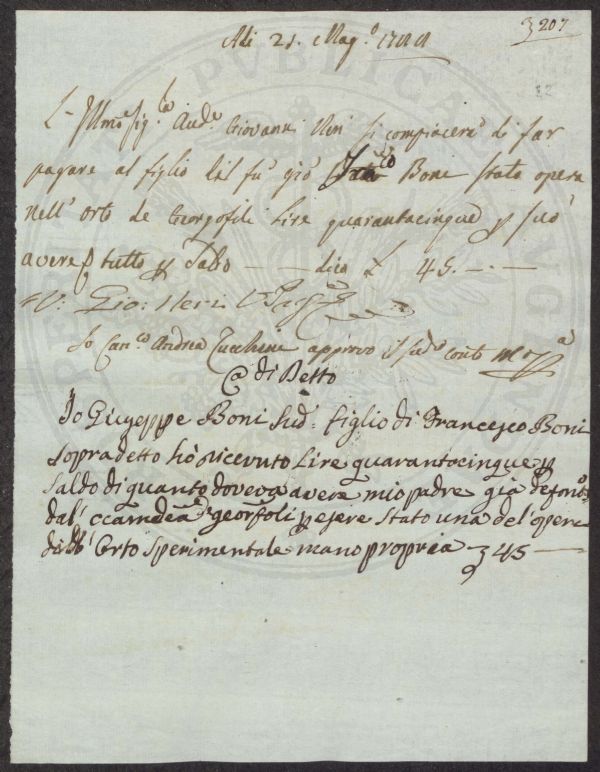 3 207
Adi 21. Mag.º 1788
32
L'Illmo Sig.re Aud.e Giovanni Neri si compiacerà di far
pagare al figlio del fu già Fran.co Boni stato opera
nell' orto de Georgofili Lire quarantacinque p suo
avere p tutto p Saldo — — dico £ 45. — . —
V: Gio: Neri
Io Can.co Andrea Zucchini approvo il sud.o conto
Adi Detto
Io Giuseppe Boni Sud.o figlio di Francesco Boni
sopradetto hò ricevuto Lire quarantacinque p
Saldo di quanto doveva avere mio padre già defonto
dal' georfoli p esere stato una del' opere
del' Orto sperimentale mano propria 345 —
PUBLICA